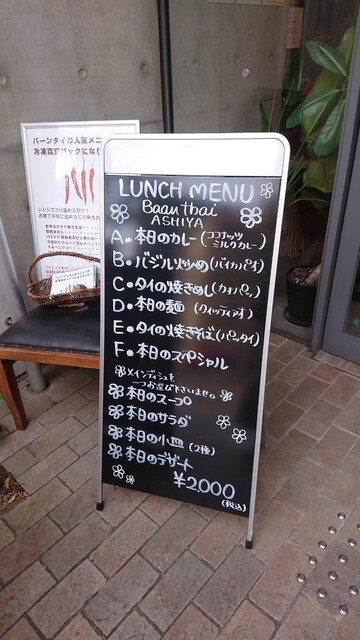 バーンタイの人気メニ
冷凍真空パックになり
LUNCH MENU
Baan thai
ASHIYA
A. 本日のカレー(ココナッツミルクカレー)
B. バジル炒め(バイカパオ)
C. タイの焼きめし(カオパッ)
D. 本日の麺(クイッティアオ)
E. タイの焼きそば(パッタイ)
F. 本日のスペシャル
メインディシュを
一つお選び下さいませ。
本日のスープ
本日のサラダ
本日の小皿(2種)
本日のデザート
¥2,000
(税込)